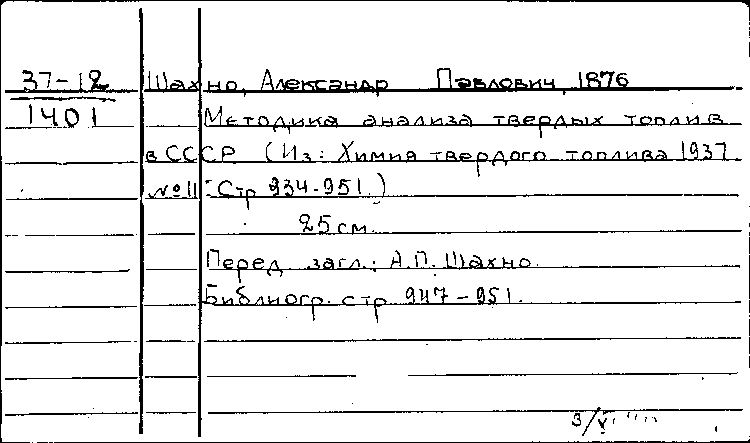 37-12 Шахно, Александр Павлович, 1876
1401 Методика анализа твердых топлив
в СССР (Из: Химия твердого топлива 1937
№ 11: Стр 934-951.)
25 см.
Перед загл.: А.П. Шахно.
Библиогр. стр 947-951.
3/V